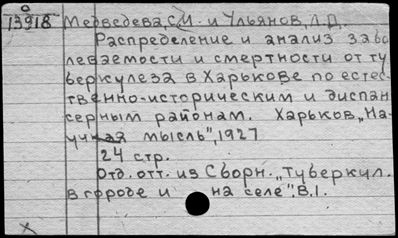 о
13918 Медведева, С.М. и Ульянов, Л.Д.
Распределение и анализ забо
леваемости и смертности от ту
беркулеза в Харькове по естес-
твенно-историческим и диспан
серным районам. Харьков, „На-
учная мысль", 1927
24 стр.
Отд. отт. из Сборн. „Туберкул.
в городе и на селе". В.1.